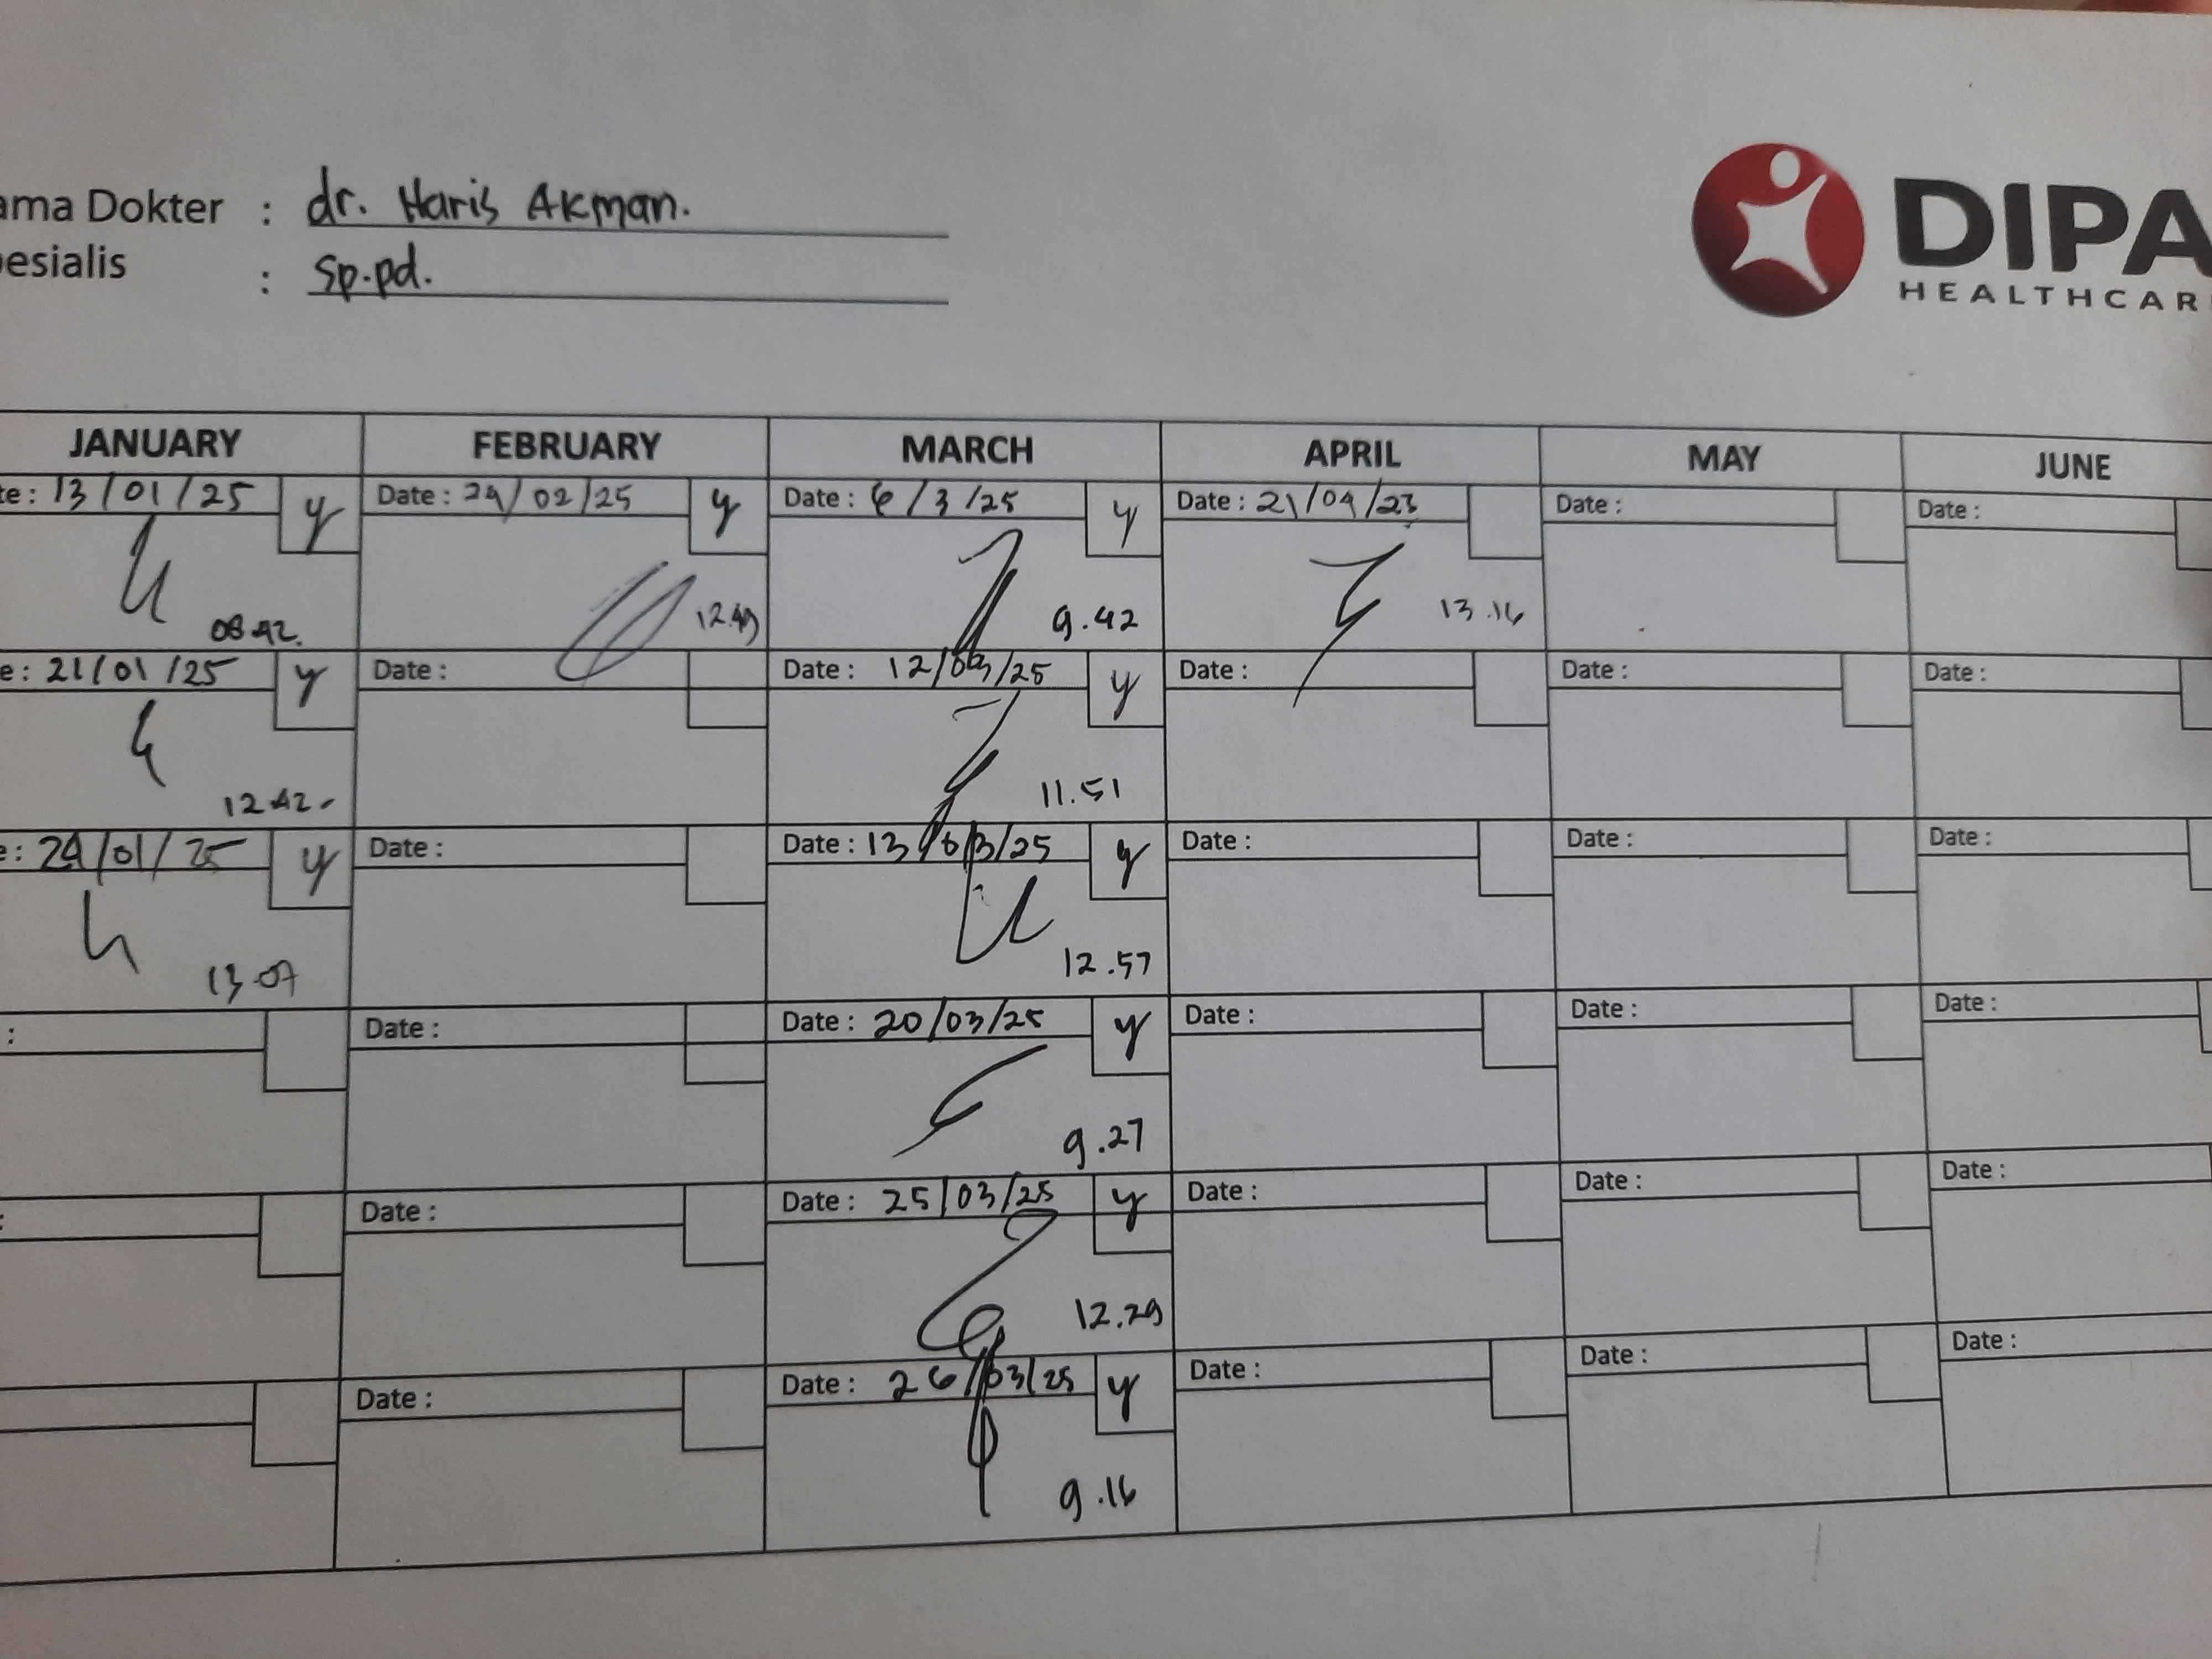 ama Dokter : dr. Haris Akman.
esialis : Sp.pd.
DIPA
HEALTHCAR
JANUARY FEBRUARY MARCH APRIL MAY JUNE
te : 13/01/25 y Date : 24/02/25 y Date : 6/3/25 y Date : 21/04/23 Date : Date :
08.42. 12.49 9.42 13.16
e : 21/01/25 y Date : Date : 12/03/25 y Date : Date : Date :
12.42. 11.51
e : 24/01/25 y Date : Date : 13/03/25 y Date : Date : Date :
13.07 12.57
: Date : Date : 20/03/25 y Date : Date : Date :
9.27
: Date : Date : 25/03/25 y Date : Date : Date :
12.29
Date : Date : 26/03/25 y Date : Date : Date :
9.16